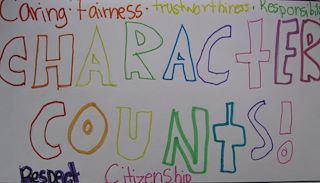 Caring · fairness · trustworthiness · Responsibi
CHARACTER
COUNTS!
Respect Citizenship